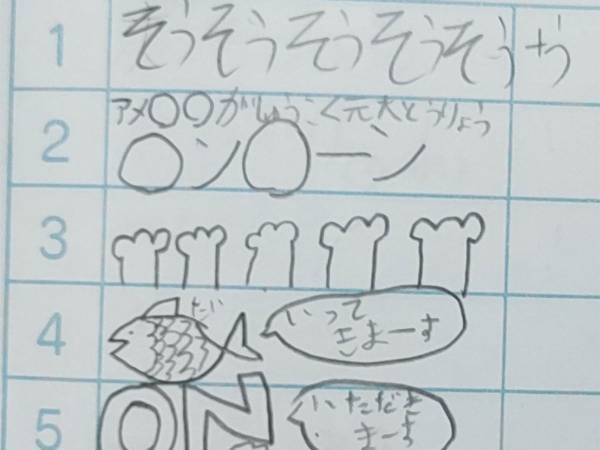 1 そうそうそうそうそう+う
2 アメ〇〇がっしゅうこく元大とうりょう
〇ン〇ーン
3
4 たい いって
きまーす
5 ON いただき
まーす